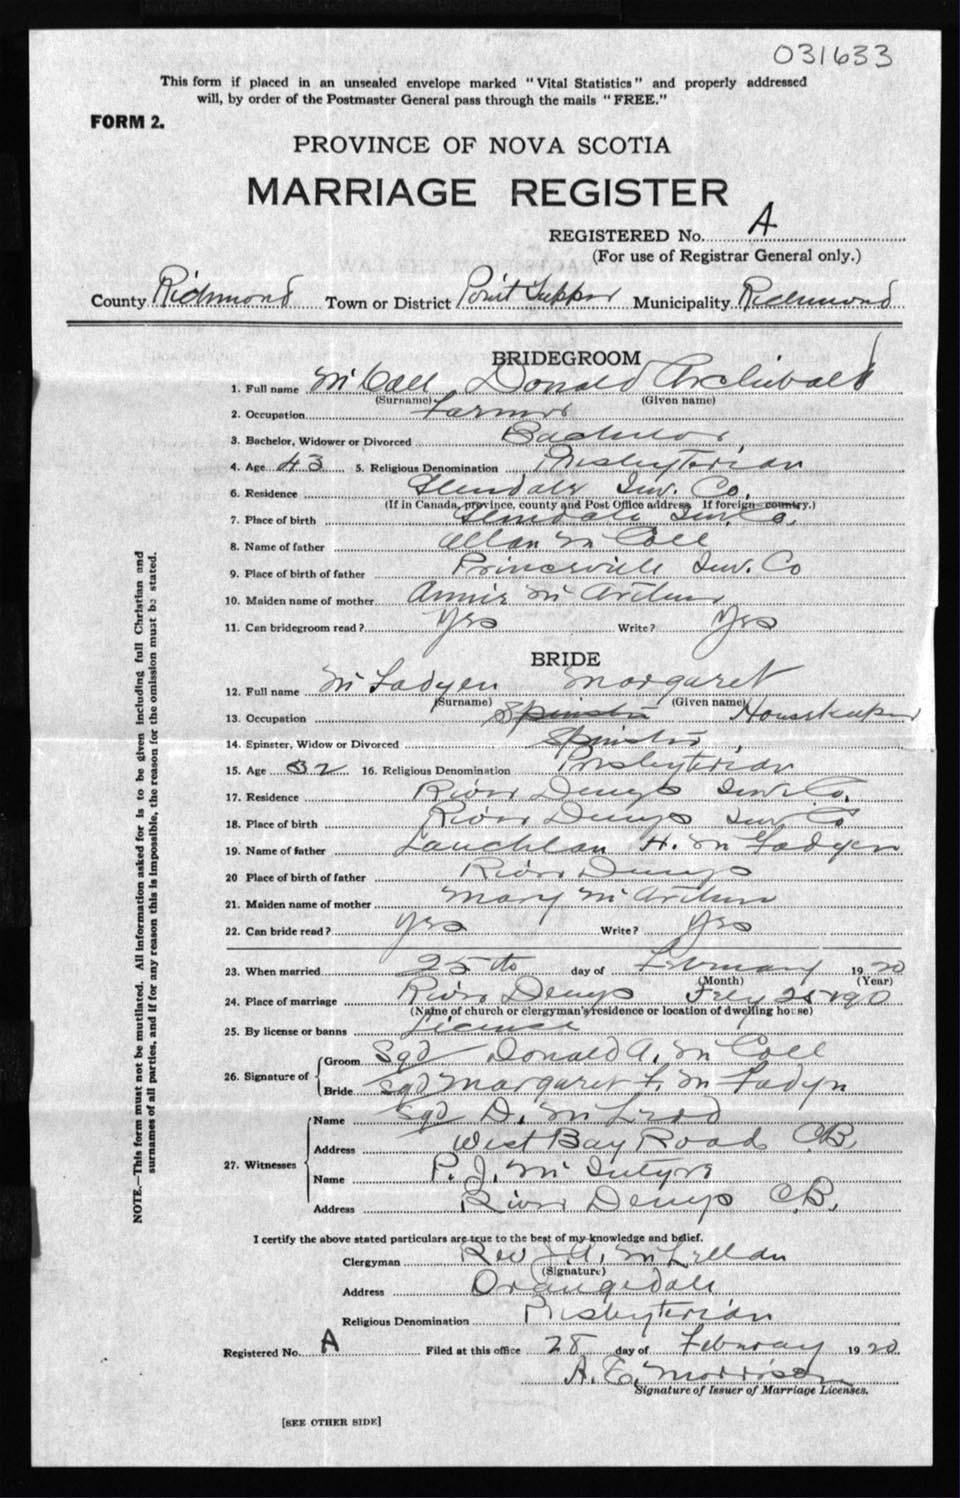 031633
This form if placed in an unsealed envelope marked "Vital Statistics" and properly addressed
will, by order of the Postmaster General pass through the mails "FREE."
FORM 2.
PROVINCE OF NOVA SCOTIA
MARRIAGE REGISTER
REGISTERED No. A
(For use of Registrar General only.)
County Richmond Town or District Point Tupper Municipality Richmond
BRIDEGROOM
1. Full name McColl Donald Archibald
(Surname) (Given name)
2. Occupation Farmer
3. Bachelor, Widower or Divorced Bachelor
4. Age 43 5. Religious Denomination Presbyterian
6. Residence Glendale Inv. Co.
(If in Canada, province, county and Post Office address. If foreign country.)
7. Place of birth Glendale Inv. Co.
8. Name of father Allan McColl
9. Place of birth of father Princeville Inv. Co
10. Maiden name of mother Annie McArthur
11. Can bridegroom read? Yes Write? Yes
BRIDE
12. Full name McFadyen Margaret
(Surname) (Given name)
13. Occupation Spinster Housekeeper
14. Spinster, Widow or Divorced Spinster
15. Age 32 16. Religious Denomination Presbyterian
17. Residence River Denys Inv. Co.
18. Place of birth River Denys Inv. Co
19. Name of father Lauchlan H. McFadyen
20 Place of birth of father River Denys
21. Maiden name of mother Mary McArthur
22. Can bride read? Yes Write? Yes
23. When married 25th day of February 1920
(Month) (Year)
24. Place of marriage River Denys Feby 25
(Name of church or clergyman's residence or location of dwelling house)
25. By license or banns License
26. Signature of
Groom Sgd Donald A. McColl
Bride Sgd Margaret F. McFadyn
27. Witnesses
Name Sgd D. McLeod
Address West Bay Road C.B.
Name P. J. McIntyre
Address River Denys C.B.
I certify the above stated particulars are true to the best of my knowledge and belief.
Clergyman Rev J. A. McLellan
(Signature)
Address Orangedale
Religious Denomination Presbyterian
Registered No. A Filed at this office 28 day of February 1920.
A. E. Morrison
Signature of Issuer of Marriage Licenses.
[SEE OTHER SIDE]
NOTE.—This form must not be mutilated. All information asked for is to be given including full Christian and
surnames of all parties, and if for any reason this is impossible, the reason for the omission must be stated.